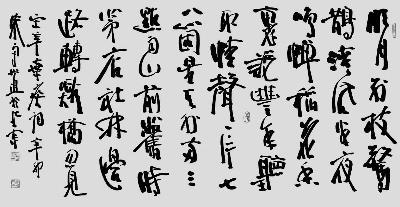 明月別枝驚
鵲清風半夜
鳴蟬稻花香
裏說豐年聽
取蛙聲一片七
八箇星天外兩三
點雨山前舊時
茅店社林邊
路轉溪橋忽見
宋辛棄疾詞辛卯